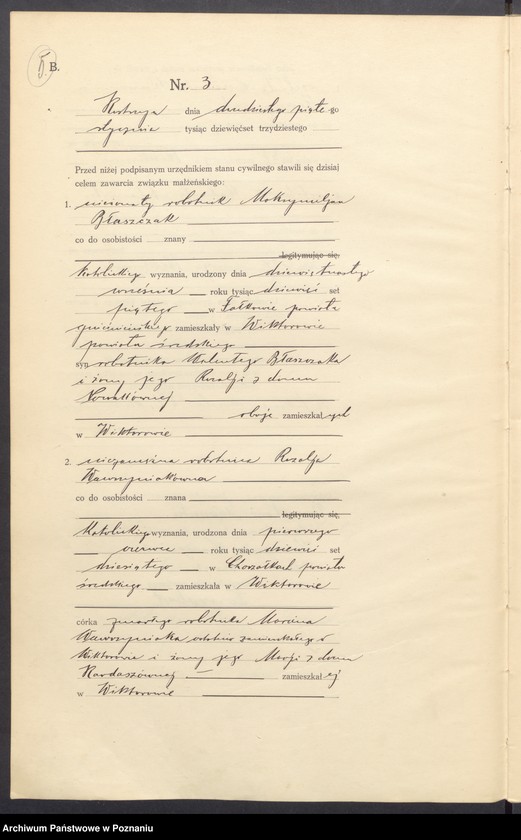 5. B.
Nr. 3
Kostrzyn dnia dwudziestego piąte-go
stycznia tysiąc dziewięćset trzydziestego
Przed niżej podpisanym urzędnikiem stanu cywilnego stawili się dzisiaj
celem zawarcia związku małżeńskiego:
1. nieżonaty robotnik Maksymiljan
Błaszczak
co do osobistości znany
legitymując się,
katolickiego wyznania, urodzony dnia dziewiętnastego
września roku tysiąc dziewięć set
piątego w powiatu
gnieźnieńskiego zamieszkały w Wiktorowie
powiatu średzkiego
syn robotnika Walentego Błaszczaka
i żony jego Rozalji z domu
Nowakównej
oboje zamieszkal ych
w Wiktorowie
2. niezamężna robotnica Rozalja
Wawrzyniakówna
co do osobistości znana
legitymując się,
katolickiego wyznania, urodzona dnia pierwszego
czerwca roku tysiąc dziewięć set
dziesiątego w powiatu
średzkiego zamieszkała w Wiktorowie
córka zmarłego robotnika Marcina
Wawrzyniaka ostatnio zamieszkałego w
Wiktorowie i żony jego Marji z domu
Kardaszównej zamieszkał ej
w Wiktorowie
Archiwum Państwowe w Poznaniu